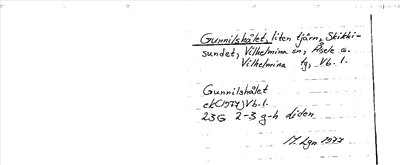 Gunnilshålet, liten tjärn, Skikki-
sundet, Vilhelmina sn, Åsele a.
Vilhelmina tg, Vb. l.
Gunnilshålet
ek(1977)Vb. l.
23G 2-3 g-h
M. Lgn 1977